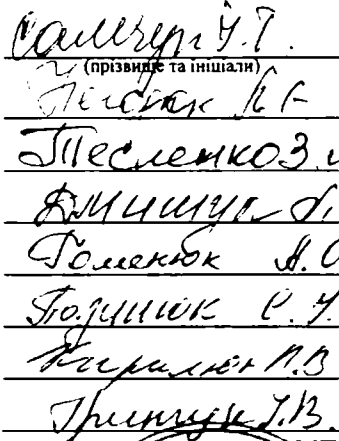 Самчук У.Т.
(прізвище та ініціали)
Тесленко З.
Дмищук
Гоменюк А.О
Подинюк С.У.
Кирилюк П.В
Гринчук І.В.